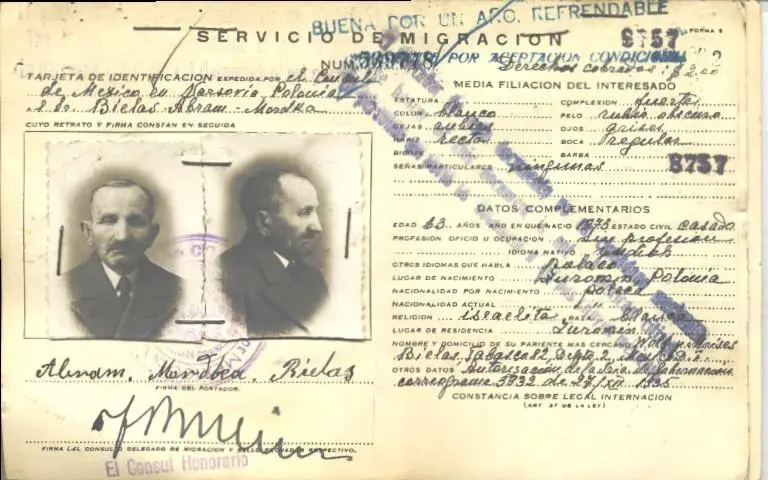 BUENA POR UN AÑO. REFRENDABLE
SERVICIO DE MIGRACION
FORMA 5
8757
NUM.
POR ACEPTACION CONDICIONAL
Derechos cobrados: $2.00
TARJETA DE IDENTIFICACION EXPEDIDA POR el Consul
de Mexico en Varsovia, Polonia
a Sr. Bielas Abram-Mordka
CUYO RETRATO Y FIRMA CONSTAN EN SEGUIDA
Abram, Mordbca, Bielas
FIRMA DEL PORTADOR.
FIRMA DEL CONSUL O DELEGADO DE MIGRACION Y SELLO RESPECTIVO.
El Consul Honorario
MEDIA FILIACION DEL INTERESADO
ESTATURA COMPLEXION fuerte
COLOR blanco PELO rubio obscuro
CEJAS OJOS grises
NARIZ recta BOCA regular
BIGOTE BARBA
SEÑAS PARTICULARES ningunas
8757
DATOS COMPLEMENTARIOS
EDAD 63 AÑOS AÑO EN QUE NACIO 1873 ESTADO CIVIL casado
PROFESION OFICIO U OCUPACION sin profesion
IDIOMA NATIVO
OTROS IDIOMAS QUE HABLA Polaco
LUGAR DE NACIMIENTO Zuromin, Polonia
NACIONALIDAD POR NACIMIENTO polaca
NACIONALIDAD ACTUAL
RELIGION israelita RAZA blanca
LUGAR DE RESIDENCIA Zuromin
NOMBRE Y DOMICILIO DE SU PARIENTE MAS CERCANO Moises
Bielas, Tabasco 82, Depto. 2, Mexico D.F.
OTROS DATOS Autorización de la Sria. de Gobernacion
correograma 3932 de 27/XII 1935
CONSTANCIA SOBRE LEGAL INTERNACION
(ART. 27 DE LA LEY)